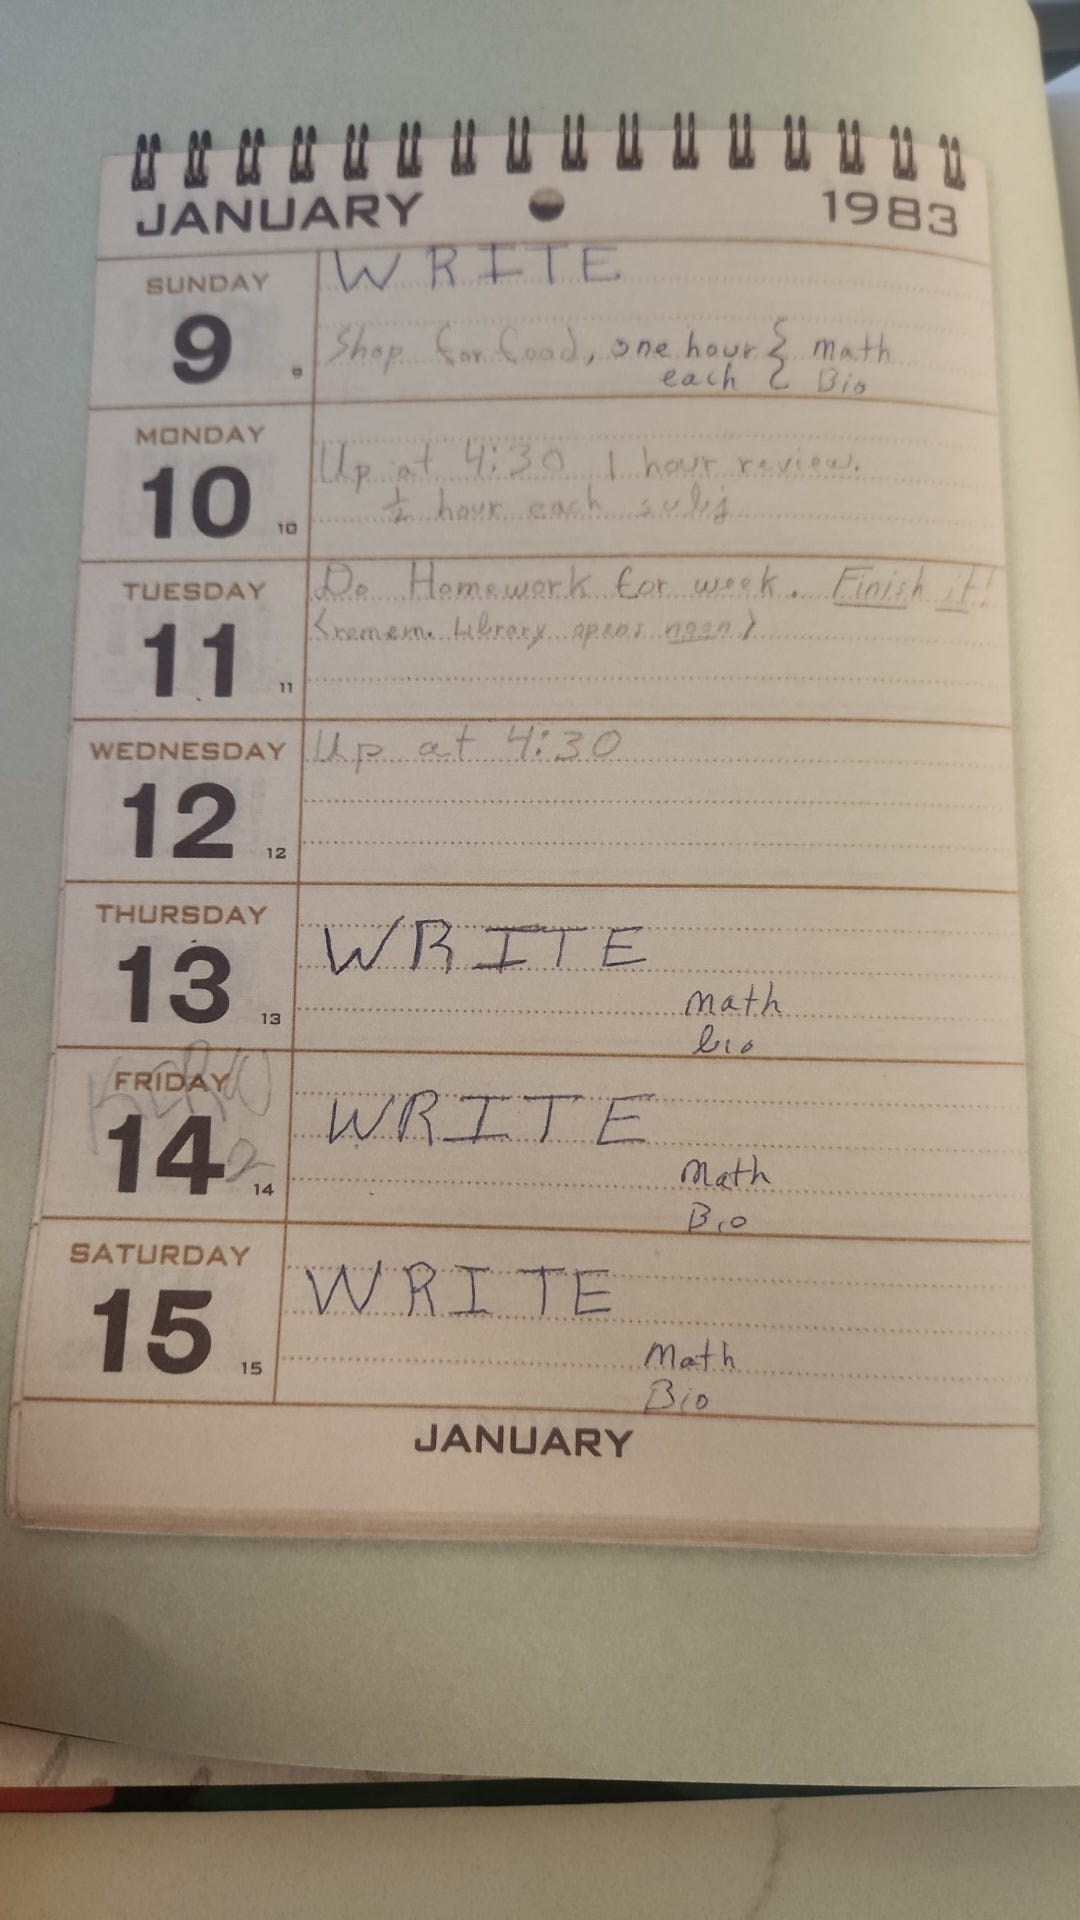 JANUARY 1983
SUNDAY
9
9
WRITE
Shop for food, one hour { math
each { Bio
MONDAY
10
10
Up at 4:30 1 hour review.
½ hour each subj
TUESDAY
11
11
Do Homework for week. Finish it!
<remem. Library opens noon>
WEDNESDAY
12
12
Up at 4:30
THURSDAY
13
13
WRITE
math
bio
FRIDAY
14
2
14
WRITE
Math
Bio
SATURDAY
15
15
WRITE
Math
Bio
JANUARY